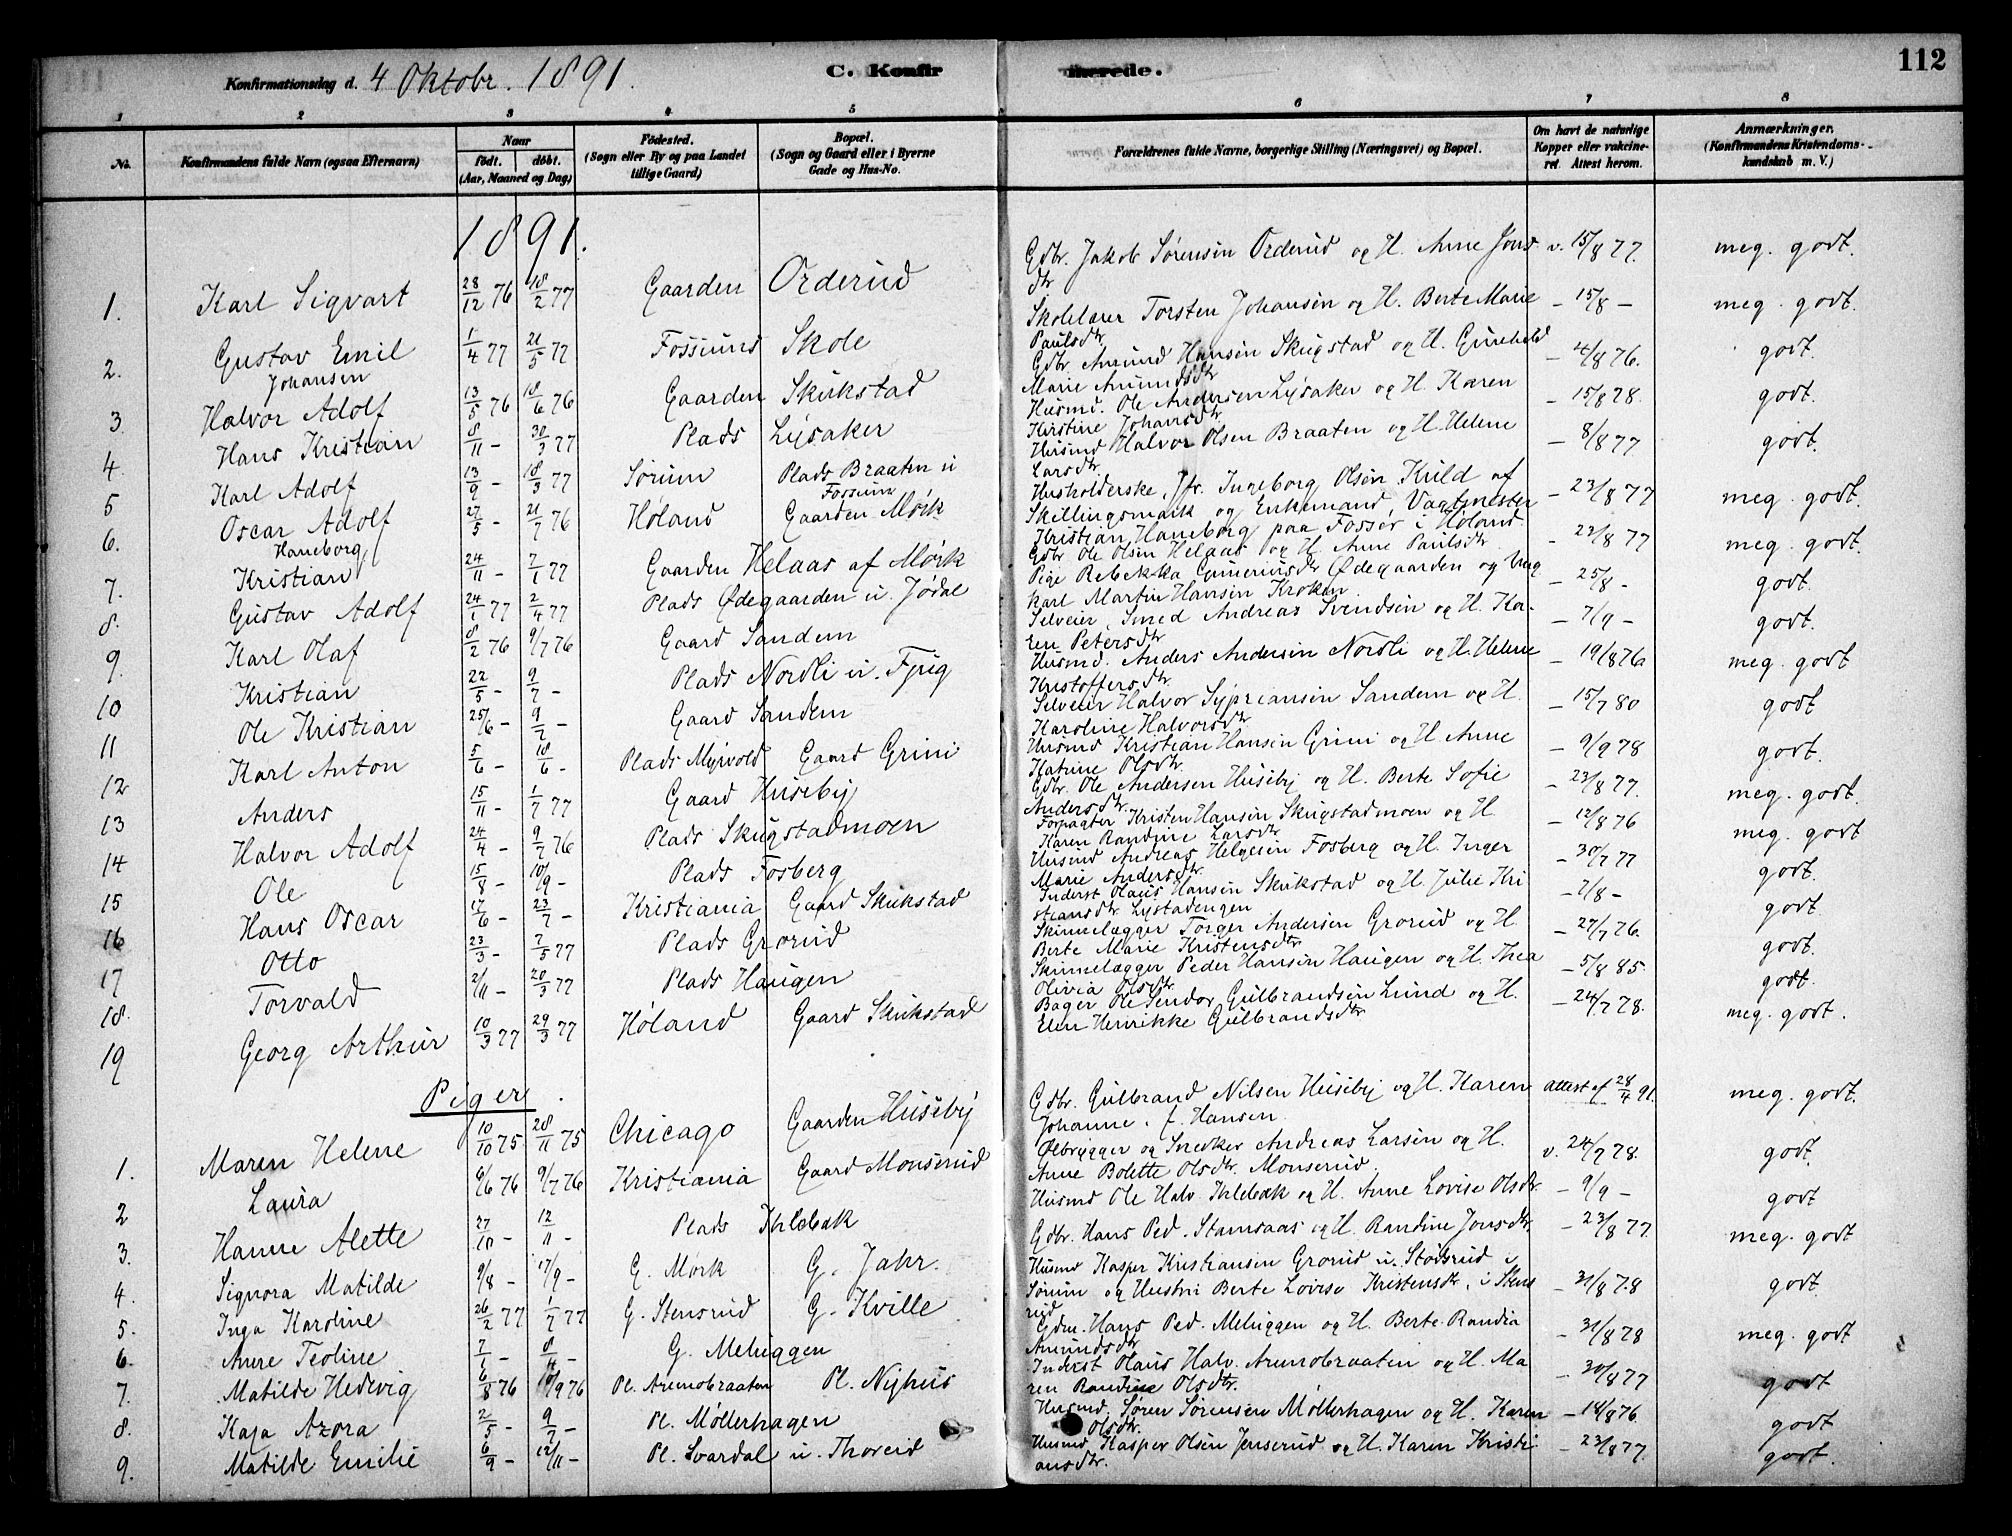 112
Konfirmationsdag d. 4 Oktobr. 1891.
C. Konfirmerede.
1 2 3 4 5 6 7 8
No.
Konfirmandens fulde Navn (ogsaa Efternavn)
Naar
født. døbt.
(Aar, Maaned og Dag)
Fødested.
(Sogn eller By og paa Landet
tillige Gaard)
Bopæl.
(Sogn og Gaard eller i Byerne
Gade og Hus-No.
Forældrenes fulde Navne, borgerlige Stilling (Næringsvei) og Bopæl.
Om havt de naturlige
Kopper eller vakcine-
ret. Attest herom.
Anmærkninger.
(Konfirmandens Kristendoms-
kundskab m. V.)
1891.
1. Karl Sigvart 28/12 76 18/2 77 Gaarden Orderud Gdbr. Jakob Sørensen Orderud og H. Anne Jons v. 15/8 77 meg. godt.
dtr
2. Gustav Emil 1/4 77 21/5 77 Fossums Skole Skolelærer Torsten Johansen og H. Berte Marie – 15/8 – meg. godt.
Johansen Paulsdtr
3. Halvor Adolf 13/5 76 18/6 76 Gaarden Skukstad Gdbr. Amund Hansen Skugstad og H. Gunhild – 4/8 76. godt.
Marie Amundsdtr
4. Hans Kristian 8/11 – 30/3 77 Plads Lysaker Husmd. Ole Andersen Lysaker og H. Karen – 15/8 78. godt.
Kirstine Johansdtr
5 Karl Adolf 13/9 – 18/3 77 Sørum Plads Braaten u Fossum Husmd Halvor Olsen Braaten og H. Helene – 8/8 77 godt.
Larsdtr
6. Oscar Adolf 27/5 – 21/7 76 Høland Gaarden Mørk Husholderske, Jfr. Ingeborg Olsen Kuld af – 23/8 77 meg. godt.
Haneborg Skillingsmark og Enkemand, Vagtmester
Kristian Haneborg paa Fosser i Høland.
7. Kristian 24/11 – 7/1 77 Gaarden Helaas af Mørk Gdbr Ole Olsen Helaas og H. Anne Paulsdtr – 23/8 77 meg. godt.
8. Gustav Adolf 24/1 77 2/4 77 Plads Ødegaarden u. Jødal Pige Rebekka Guneriusdtr Ødegaarden og Ung – 25/8 – godt.
karl Martin Hansen Kroken.
9. Karl Olaf 8/2 76 9/7 76 Gaard Sandem Selveier, Smed Andreas Svendsen og H. Ka- – 7/9 – godt.
ren Petersdtr
10 Kristian 22/5 – 9/7 – Plads Nordli u. Fjug Husmd. Anders Andersen Nordli og H. Helene – 19/8 76 meg. godt
Kristoffersdtr
11 Ole Kristian 25/6 – 9/7 – Gaard Sandem Selveier Halvor Sypriansen Sandem og H. – 15/7 80 godt
Karoline Halvorsdtr
12 Karl Anton 5/6 – 18/6 – Plads Myrvold Gaard Grini Husmd Kristian Hansen Grini og H. Anne – 9/9 78 godt.
Katrine Olsdtr.
13 Anders 15/11 – 1/7 77 Gaard Huseby Gdbr. Ole Andersen Huseby og H. Berte Sofie – 23/8 77. meg. godt.
Andersdtr.
14 Halvor Adolf 24/4 – 9/7 76 Plads Skugstadmoen Forpagter Kristen Hansen Skugstadmoen og H. – 12/8 76 meg. godt
Karen Randine Larsdtr
15 Ole 15/8 – 10/9 – Plads Fosberg Husmd Andreas Helgesen Fosberg og H. Inger – 30/7 77 godt.
Marie Andersdtr.
16 Hans Oscar 17/6 – 23/7 – Kristiania Gaard Skukstad Inderst Olaus Hansen Skukstad og H. Julie Kri – 7/8 – godt.
stiansdtr Lystadengen
17 Otto 23/3 – 7/5 77 Plads Grorud Skinnelægger Torger Andersen Grorud og H. – 27/7 76. godt
Berte Marie Kristensdtr.
18. Torvald 2/11 – 20/3 77 Plads Haugen Skinnelægger Peder Hansen Haugen og H. Thea – 5/8 85. godt.
Olivia Olsdtr
19 Georg Arthur 10/3 77 29/3 77 Høland Gaard Skukstad Bager Ole Sendor Gulbrandsen Lund og H. – 24/7 78. meg. godt.
Elen Henrikke Gulbrandsdtr
Piger.
1. Maren Helene 10/10 75 28/11 75 Chicago Gaarden Huseby Gdbr. Gulbrand Nilsen Huseby og H. Karen attest af 28/4 91. meg. godt.
Johanne, f. Hansen.
2 Laura 6/6 76 9/7 76 Kristiania Gaard Monserud Ølbrygger og Snedker Andreas Larsen og H. v. 24/7 78. godt.
Anne Bolette Olsdtr. Monserud.
3. Hanne Alette 27/10 – 12/11 – Plads Ihlebæk Husmd Ole Halv. Ihlebæk og H. Anne Lovise Olsdtr. – 9/9 – godt
4. Signora Matilde 9/8 – 17/9 – G. Mørk G. Jahr. Gdbr. Hans Ped. Stamsaas og H. Randine Jonsdtr. – 23/8 77. meg. godt
5. Inga Karoline 26/2 77 1/7 77 G. Stensrud G. Kville Husmd Kasper Kristiansen Grorud u. Stensrud i
Sørum og Hustru Berte Lovise Kristensdtr, i Stens – 31/8 78 godt.
rud
6. Anne Teoline 7/1 – 8/4 – G. Mehuggen Gdm. Hans Ped. Mehuggen og H. Berte Randia – 31/8 78 meg. godt
Amundsdtr
7. Matilde Hedevig 6/8 76 10/9 76 Pl. Aremobraaten Pl. Nyhus Inderst Olaus Halv. Aremobraaten og H. Ma – 30/8 77 godt
ren Randine Olsdtr.
8. Kaja Azora 2/5 – 9/7 – Pl. Møllerhagen Husmd. Søren Sørensen Møllerhagen og H. Karen – 14/8 76. godt
Olsdtr.
9. Matilde Emilie 6/9 – 12/11 – Pl. Svardal u. Thoreid Husmd Kasper Olsen Jenserud og H. Karen Kristi – 23/8 77. godt.
ansdtr.